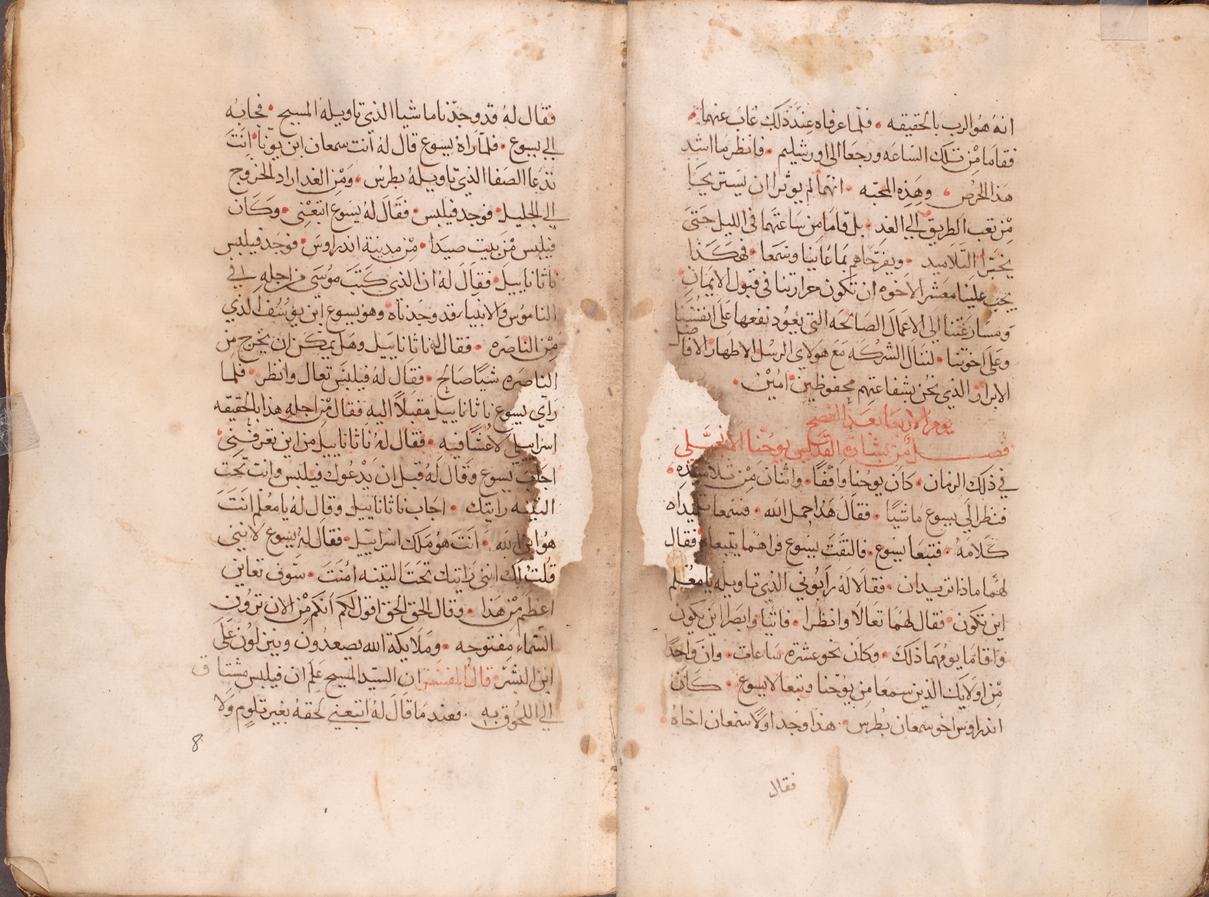 انه هو الرب بالحقيقه • فلما عرفاه عند ذلك غاب عنهما •
فقاما من تلك الساعه ورجعا الى اورشليم • فانظر ما اشد
هذا الحرص • وهذه المحبه • انهما لم يوثرا ان يستريحا
من تعب الطريق الي الغد • بل قاما من ساعتهما في الليل حتى
التلاميد • ويفرحاهم بما عاينا وسمعا • فهكذا
يجب علينا معشر الاخوه ان تكون حرارتنا في قبول الايمان •
ومسارعتنا الى الاعمال الصالحه التي يعود نفعها على انفسنا
وعلى اخوتنا • لننال الشركه مع هولاي الرسل الاطهار الافاضل
الابرار الذي نحن بشفاعتهم محفوظين امين •
يوم الاربعا بعد الفصح
فصل من بشارة القديس يوحنا الانجيلي
في ذلك الزمان • كان يوحنا واقفا • واثنان من تلاميذه •
فنظر الي يسوع ماشيا • فقال هذا حمل الله • فسمعا تلميذاه
كلامه • فتبعا يسوع • فالتفت يسوع فراهما يتبعاه • فقال
لهما ماذا تريدان • فقالا له رابوني الذي تاويله يا معلم
اين تكون • فقال لهما تعالا وانظرا • فاتيا وابصرا اين يكون
واقاما يومهما ذلك • وكان نحو عشرة ساعات • وان واحدا
من اولايك الذين سمعا من يوحنا وتبعا لايسوع • كان
اندراوس اخو سمعان بطرس • هذا وجد اولا سمعان اخاه •
فقال
فقال له قد وجدنا ماشيا الذي تاويله المسيح • فجا به
الي يسوع • فلما راه يسوع قال له انت سمعان ابن يونا • انت
تدعا الصفا الذي تاويله بطرس • ومن الغد اراد الخروج
الي الجليل • فوجد فيلبس • فقال له يسوع اتبعني • وكان
فيلبس من بيت صيدا • من مدينة اندراوس • فوجد فيلبس
ناثانايل • فقال له ان الذي كتب موسى من اجله في
الناموس والانبياء قد وجدناه • وهو يسوع ابن يوسف الذي
من الناصره • فقال له ناثانايل وهل يمكن ان يخرج من
الناصره شيا صالح • فقال له فيلبس تعال وانظر • فلما
راى يسوع ناثانايل مقبلا اليه فقال من اجله هذا بالحقيقه
اسراييلي لا غش فيه • فقال له ناثانايل من اين تعرفني •
اجاب يسوع وقال له قبل ان يدعوك فيلبس وانت تحت
التينه رايتك • اجاب ناثانايل وقال له يا معلم انت
هو ابن الله • انت هو ملك اسراييل • فقال له يسوع لانني
قلت لك انني رايتك تحت التينه امنت • سوف تعاين
اعظم من هذا • وقال الحق الحق اقول لكم انكم من الان ترون
السماء مفتوحه • وملايكة الله يصعدون وينزلون على
ابن البشر • قال المفسر ان السيد المسيح علم ان فيلبس مشتاق
الي اللحوق به • فعندما قال له اتبعني لحقه بغير تلوم ولا
8